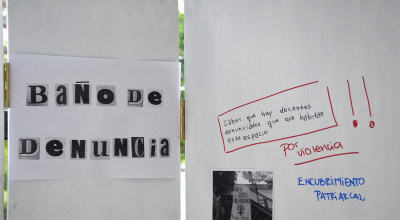 Baño De
Denuncia
Sabes que hay docentes
denunciados que aun habitan
este espacio
!!
por
violencia
ENCUBRIMIENTO
PATRIARCAL